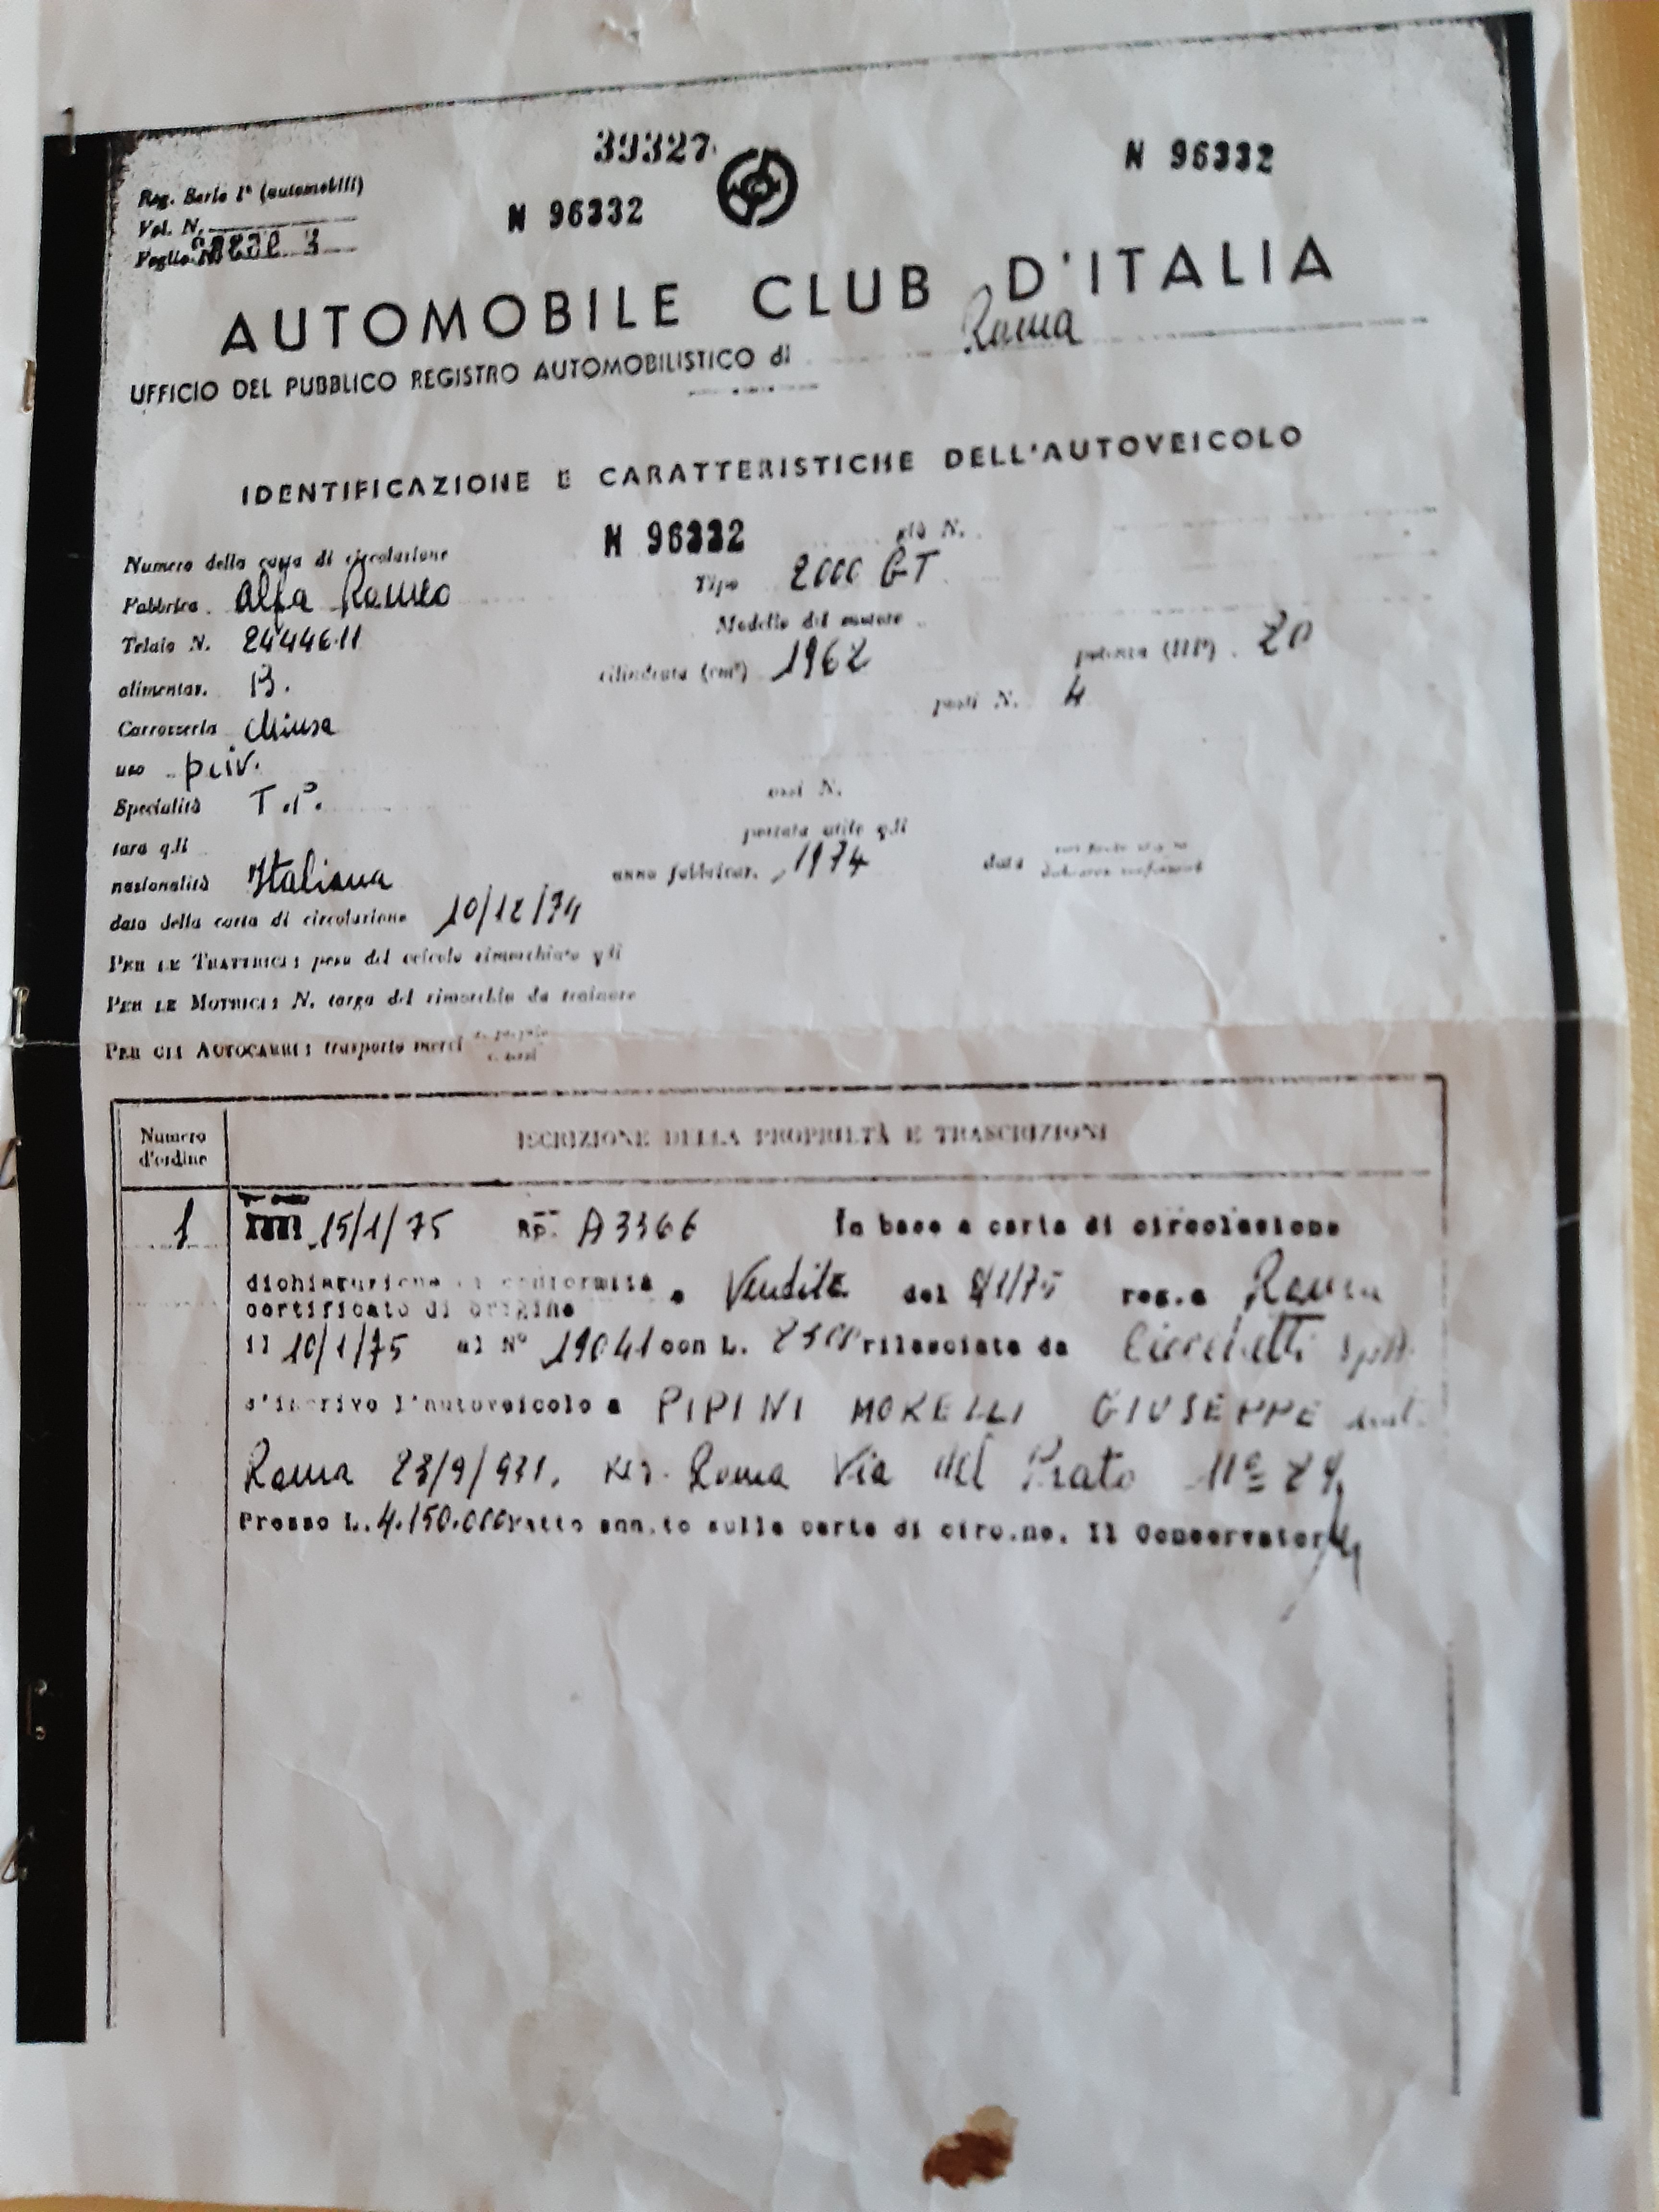 39327
N 96332
N 96332
Reg. Serie 1ª (automobili)
Vol. N.
Foglio N.
AUTOMOBILE CLUB D'ITALIA
UFFICIO DEL PUBBLICO REGISTRO AUTOMOBILISTICO di Roma
IDENTIFICAZIONE E CARATTERISTICHE DELL'AUTOVEICOLO
Numero della carta di circolazione N 96332 già N.
Fabbrica Alfa Romeo Tipo 2000 GT
Telaio N. 2444611 Modello del motore
alimentaz. B. cilindrata (cm³) 1962 potenza (HP) 20
Carrozzeria chiusa posti N. 4
uso priv.
Specialità T.P. assi N.
tara q.li portata utile q.li
nazionalità Italiana anno fabbricaz. 1974 data
data della carta di circolazione 10/12/74
PER LE TRATTRICI: peso del veicolo rimorchiato q.li
PER LE MOTRICI: N. targa del rimorchio da trainare
PER GLI AUTOCARRI: trasporto merci
Numero d'ordine
ISCRIZIONE DELLA PROPRIETÀ E TRASCRIZIONI
1 15/1/75 Rp. A3366 In base a carta di circolazione
dichiarazione di conformità
certificato di origine e Vendita del 8/1/75 reg.a Roma
il 10/1/75 al N° 19041 con L. 2300 rilasciata da
s'iscrive l'autoveicolo a PIPINI MORELLI GIUSEPPE nat.
Roma 23/9/931, res. Roma Via del Prato nº 29
Prezzo L. 4.150.000 Fatto ann.to sulla carta di circ.ne. Il Conservatore